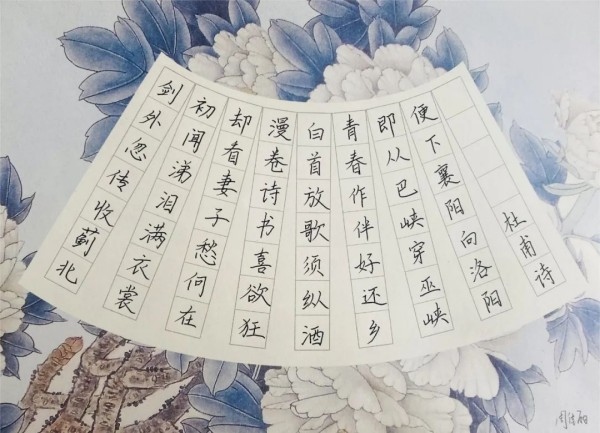 剑外忽传收蓟北
初闻涕泪满衣裳
却看妻子愁何在
漫卷诗书喜欲狂
白首放歌须纵酒
青春作伴好还乡
即从巴峡穿巫峡
便下襄阳向洛阳
杜甫诗